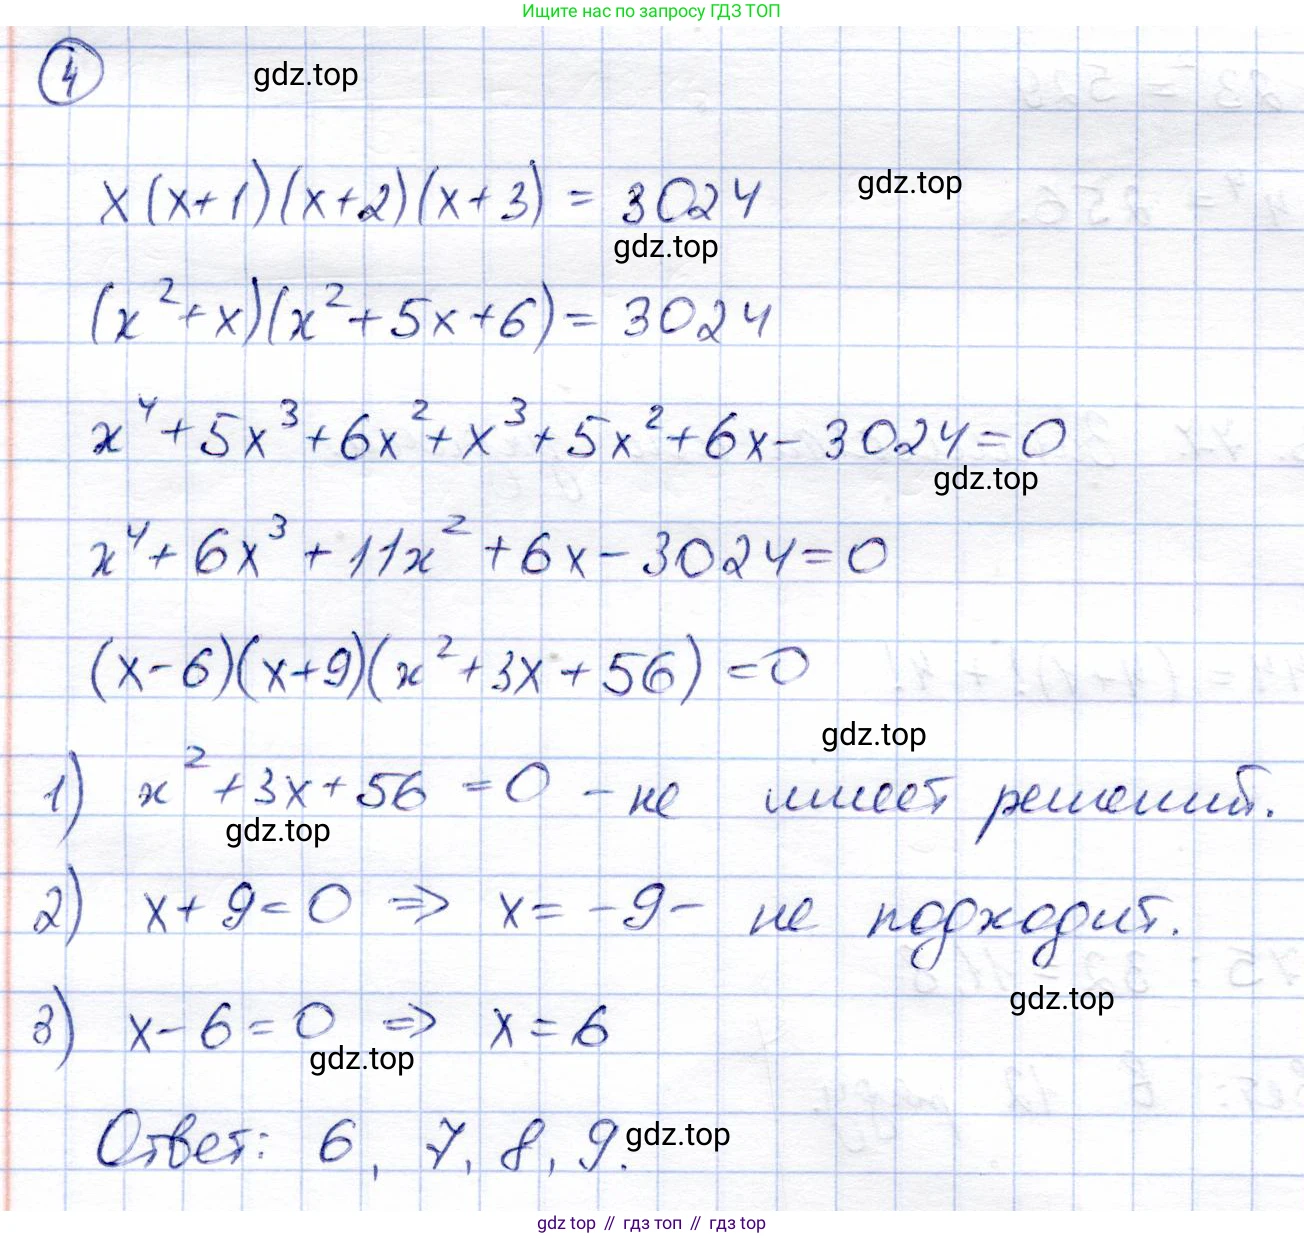 Ищите нас по запросу ГДЗ ТОП
4
gdz.top
x(x+1)(x+2)(x+3) = 3024
gdz.top
gdz.top
(x²+x)(x²+5x+6) = 3024
x⁴+5x³+6x²+x³+5x²+6x-3024=0
gdz.top
x⁴+6x³+11x²+6x-3024=0
(x-6)(x+9)(x²+3x+56)=0
gdz.top
1) x²+3x+56=0 - не имеет решений.
gdz.top
2) x+9=0 => x=-9 - не подходит.
gdz.top
3) x-6=0 => x=6
gdz.top
Ответ: 6, 7, 8, 9.
gdz.top
gdz top // гдз топ // гдз top